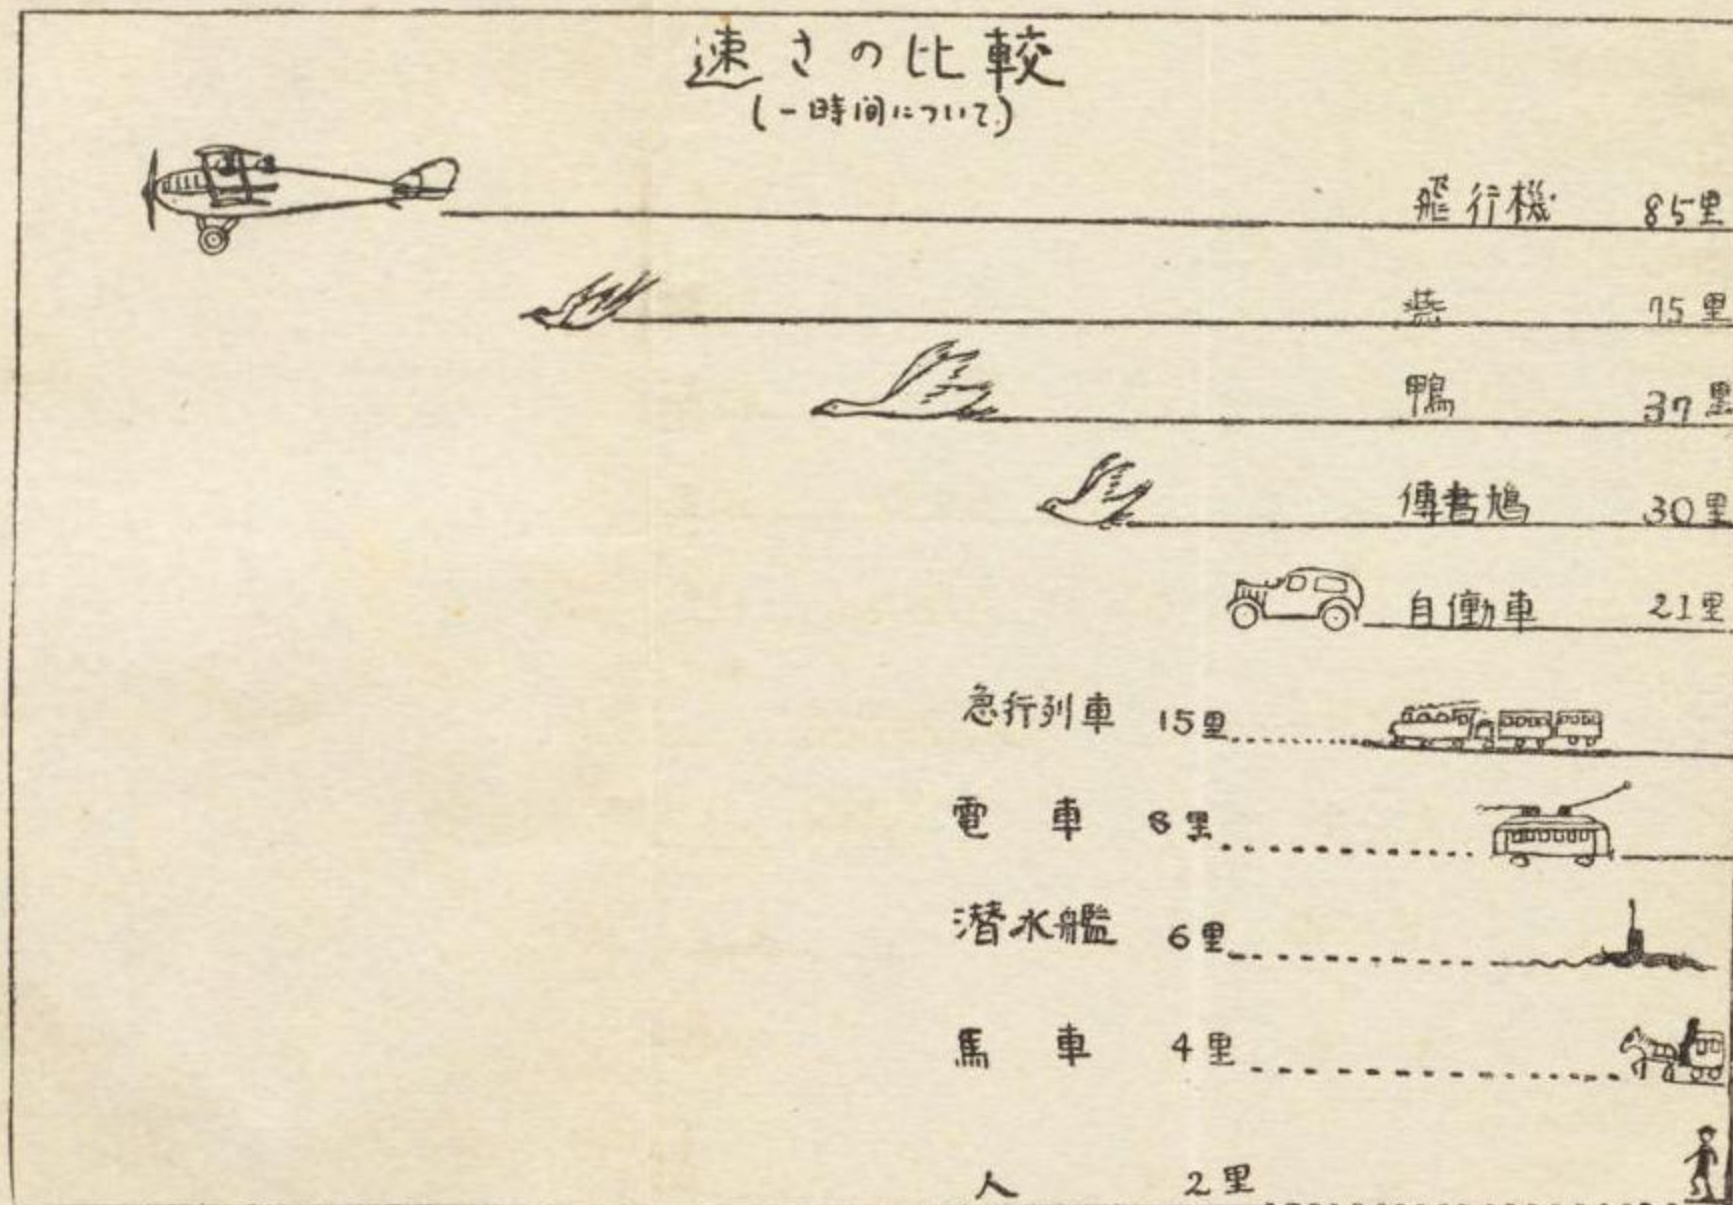 速さの比較
(一時間について)
飛行機 85里
燕 75里
鴨 37里
傳書鳩 30里
自働車 21里
急行列車 15里
電車 8里
潜水艦 6里
馬車 4里
人 2里